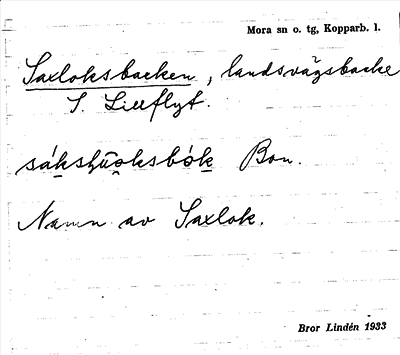 Mora sn o. tg, Kopparb. l.
Saxloksbacken, landsvägsbacke
S. Lillflyt.
Bon.
Namn av Saxlok.
Bror Lindén 1933